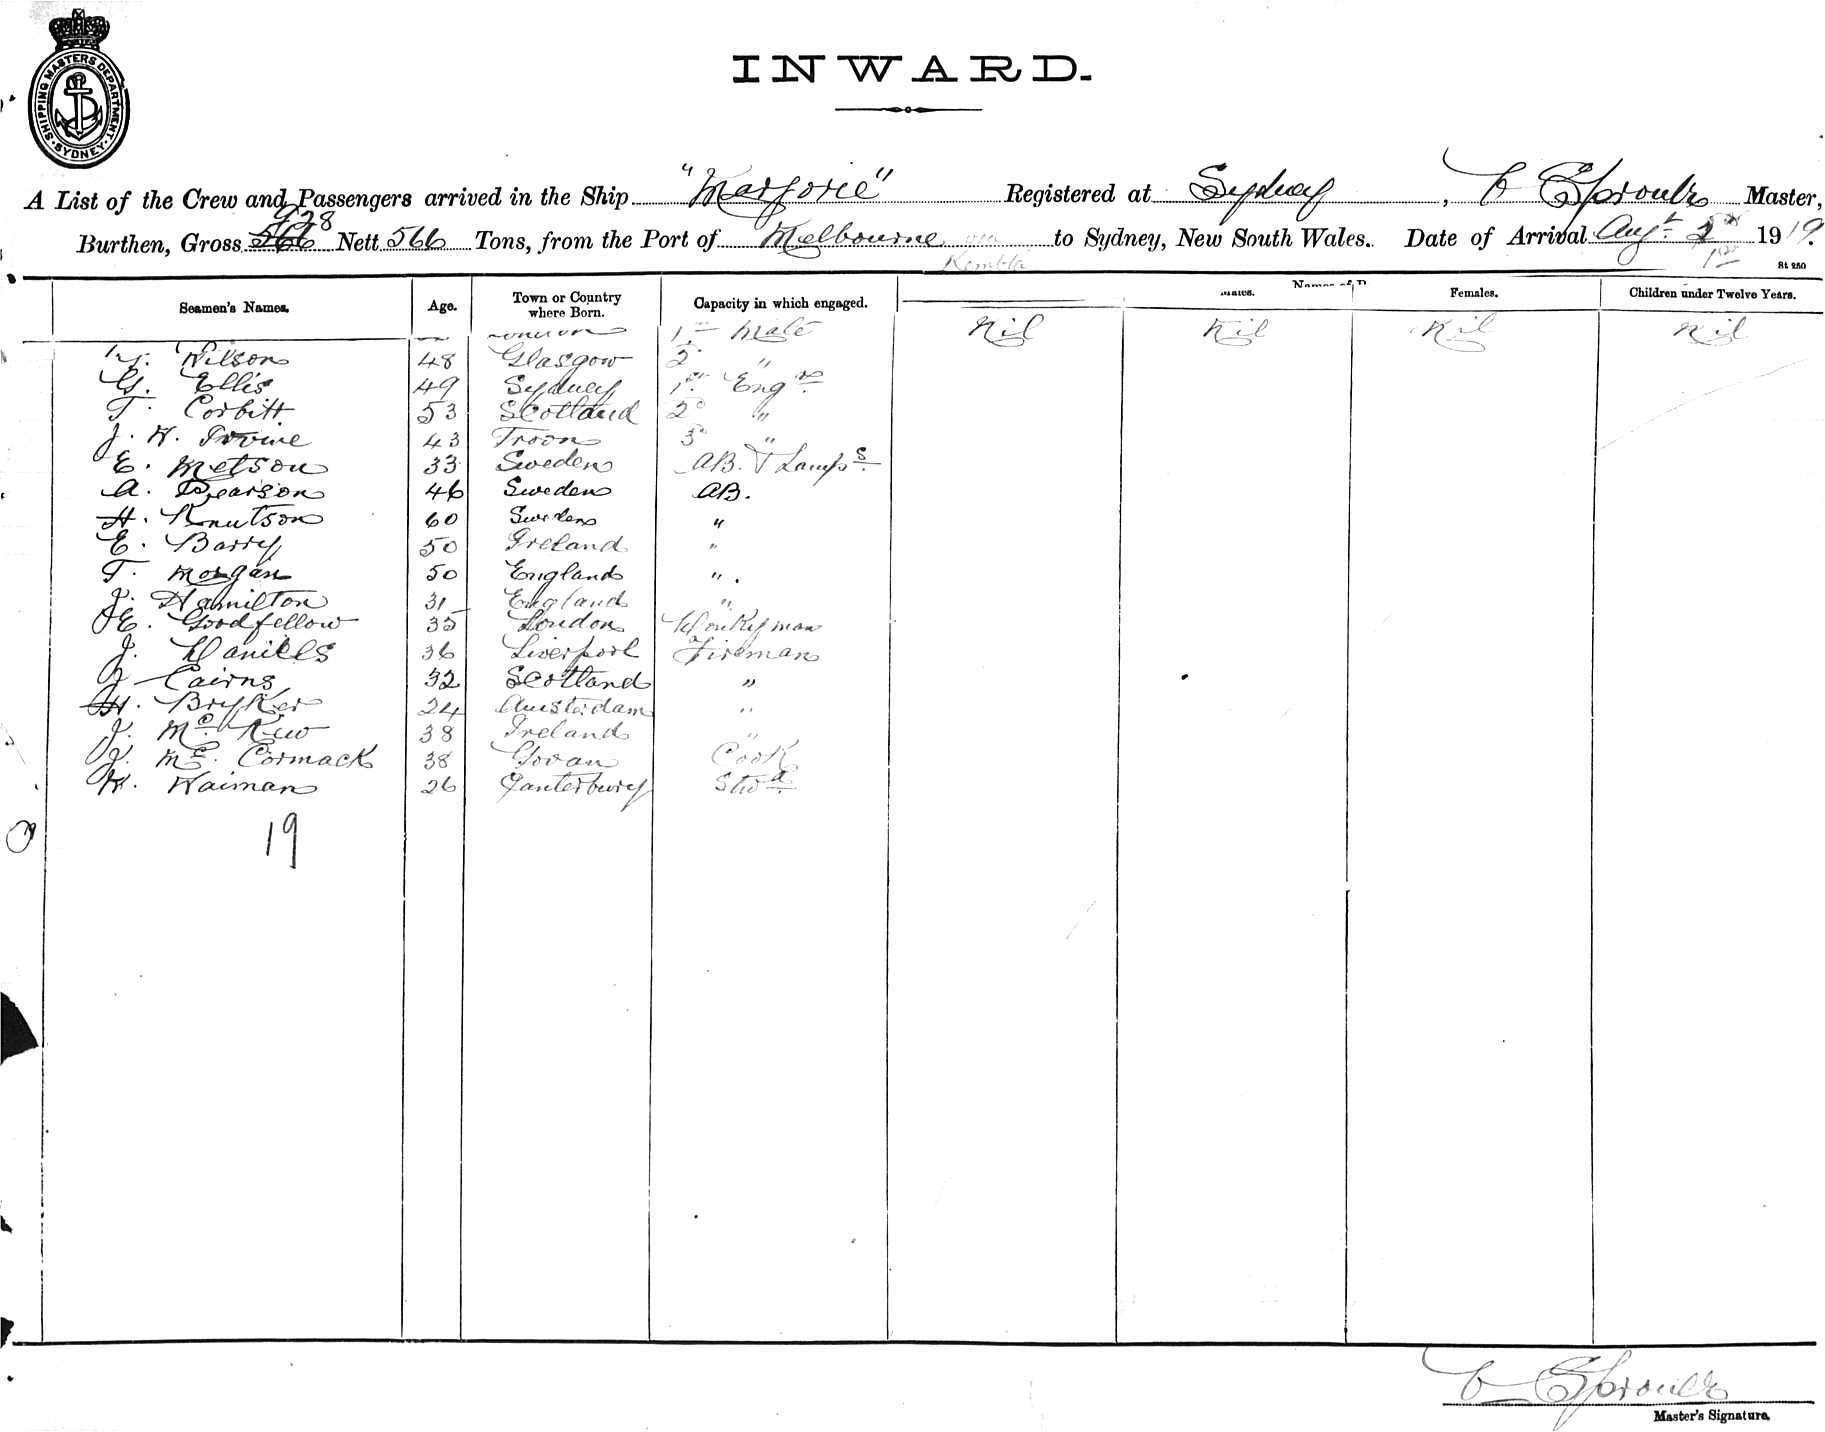 SHIPPING MASTERS DEPARTMENT · SYDNEY ·
INWARD.
A List of the Crew and Passengers arrived in the Ship "Marjorie" Registered at Sydney, C Sproule Master,
Burthen, Gross 566 928 Nett 566 Tons, from the Port of Melbourne via Kembla to Sydney, New South Wales. Date of Arrival Augt 2nd 1st 1919.
St 250
Seamen's Names. Age. Town or Country where Born. Capacity in which engaged. Names of Males. Females. Children under Twelve Years.
London 1st Mate Nil Nil Nil Nil
Wilson 48 Glasgow 2d "
G. Ellis 49 Sydney 1st Engrs
T. Corbitt 53 Scotland 2d "
J. W. Irvine 43 Troon 3d "
E. Metson 33 Sweden AB. & Lamps
A. Pearson 46 Sweden AB.
H. Knutson 60 Sweden "
E. Barry 50 Ireland "
T. Morgan 50 England " .
J. Hamilton 31 England "
E. Goodfellow 35 London Donkeyman
J. Daniells 36 Liverpool Fireman
J Cairns 32 Scotland "
H. Bryker 24 Amsterdam "
J. Mc. Kew 38 Ireland "
J. Mc. Cormack 38 Govan Cook
W. Waiman 26 Canterbury Stwd
19
C Sproule
Master's Signature.